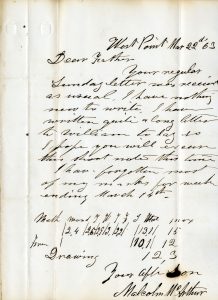 West Point Mar 22nd 63
Dear Father
Your regular
Sunday letter was received
as usual. I have nothing
new to write. I have
written quite a long letter
to William to day so
I hope you will excuse
this short note this time
I have forgotten most
of my marks for week
ending March 14th
Math
Drawing 12 3
Your Aff Son
Malcolm McArthur